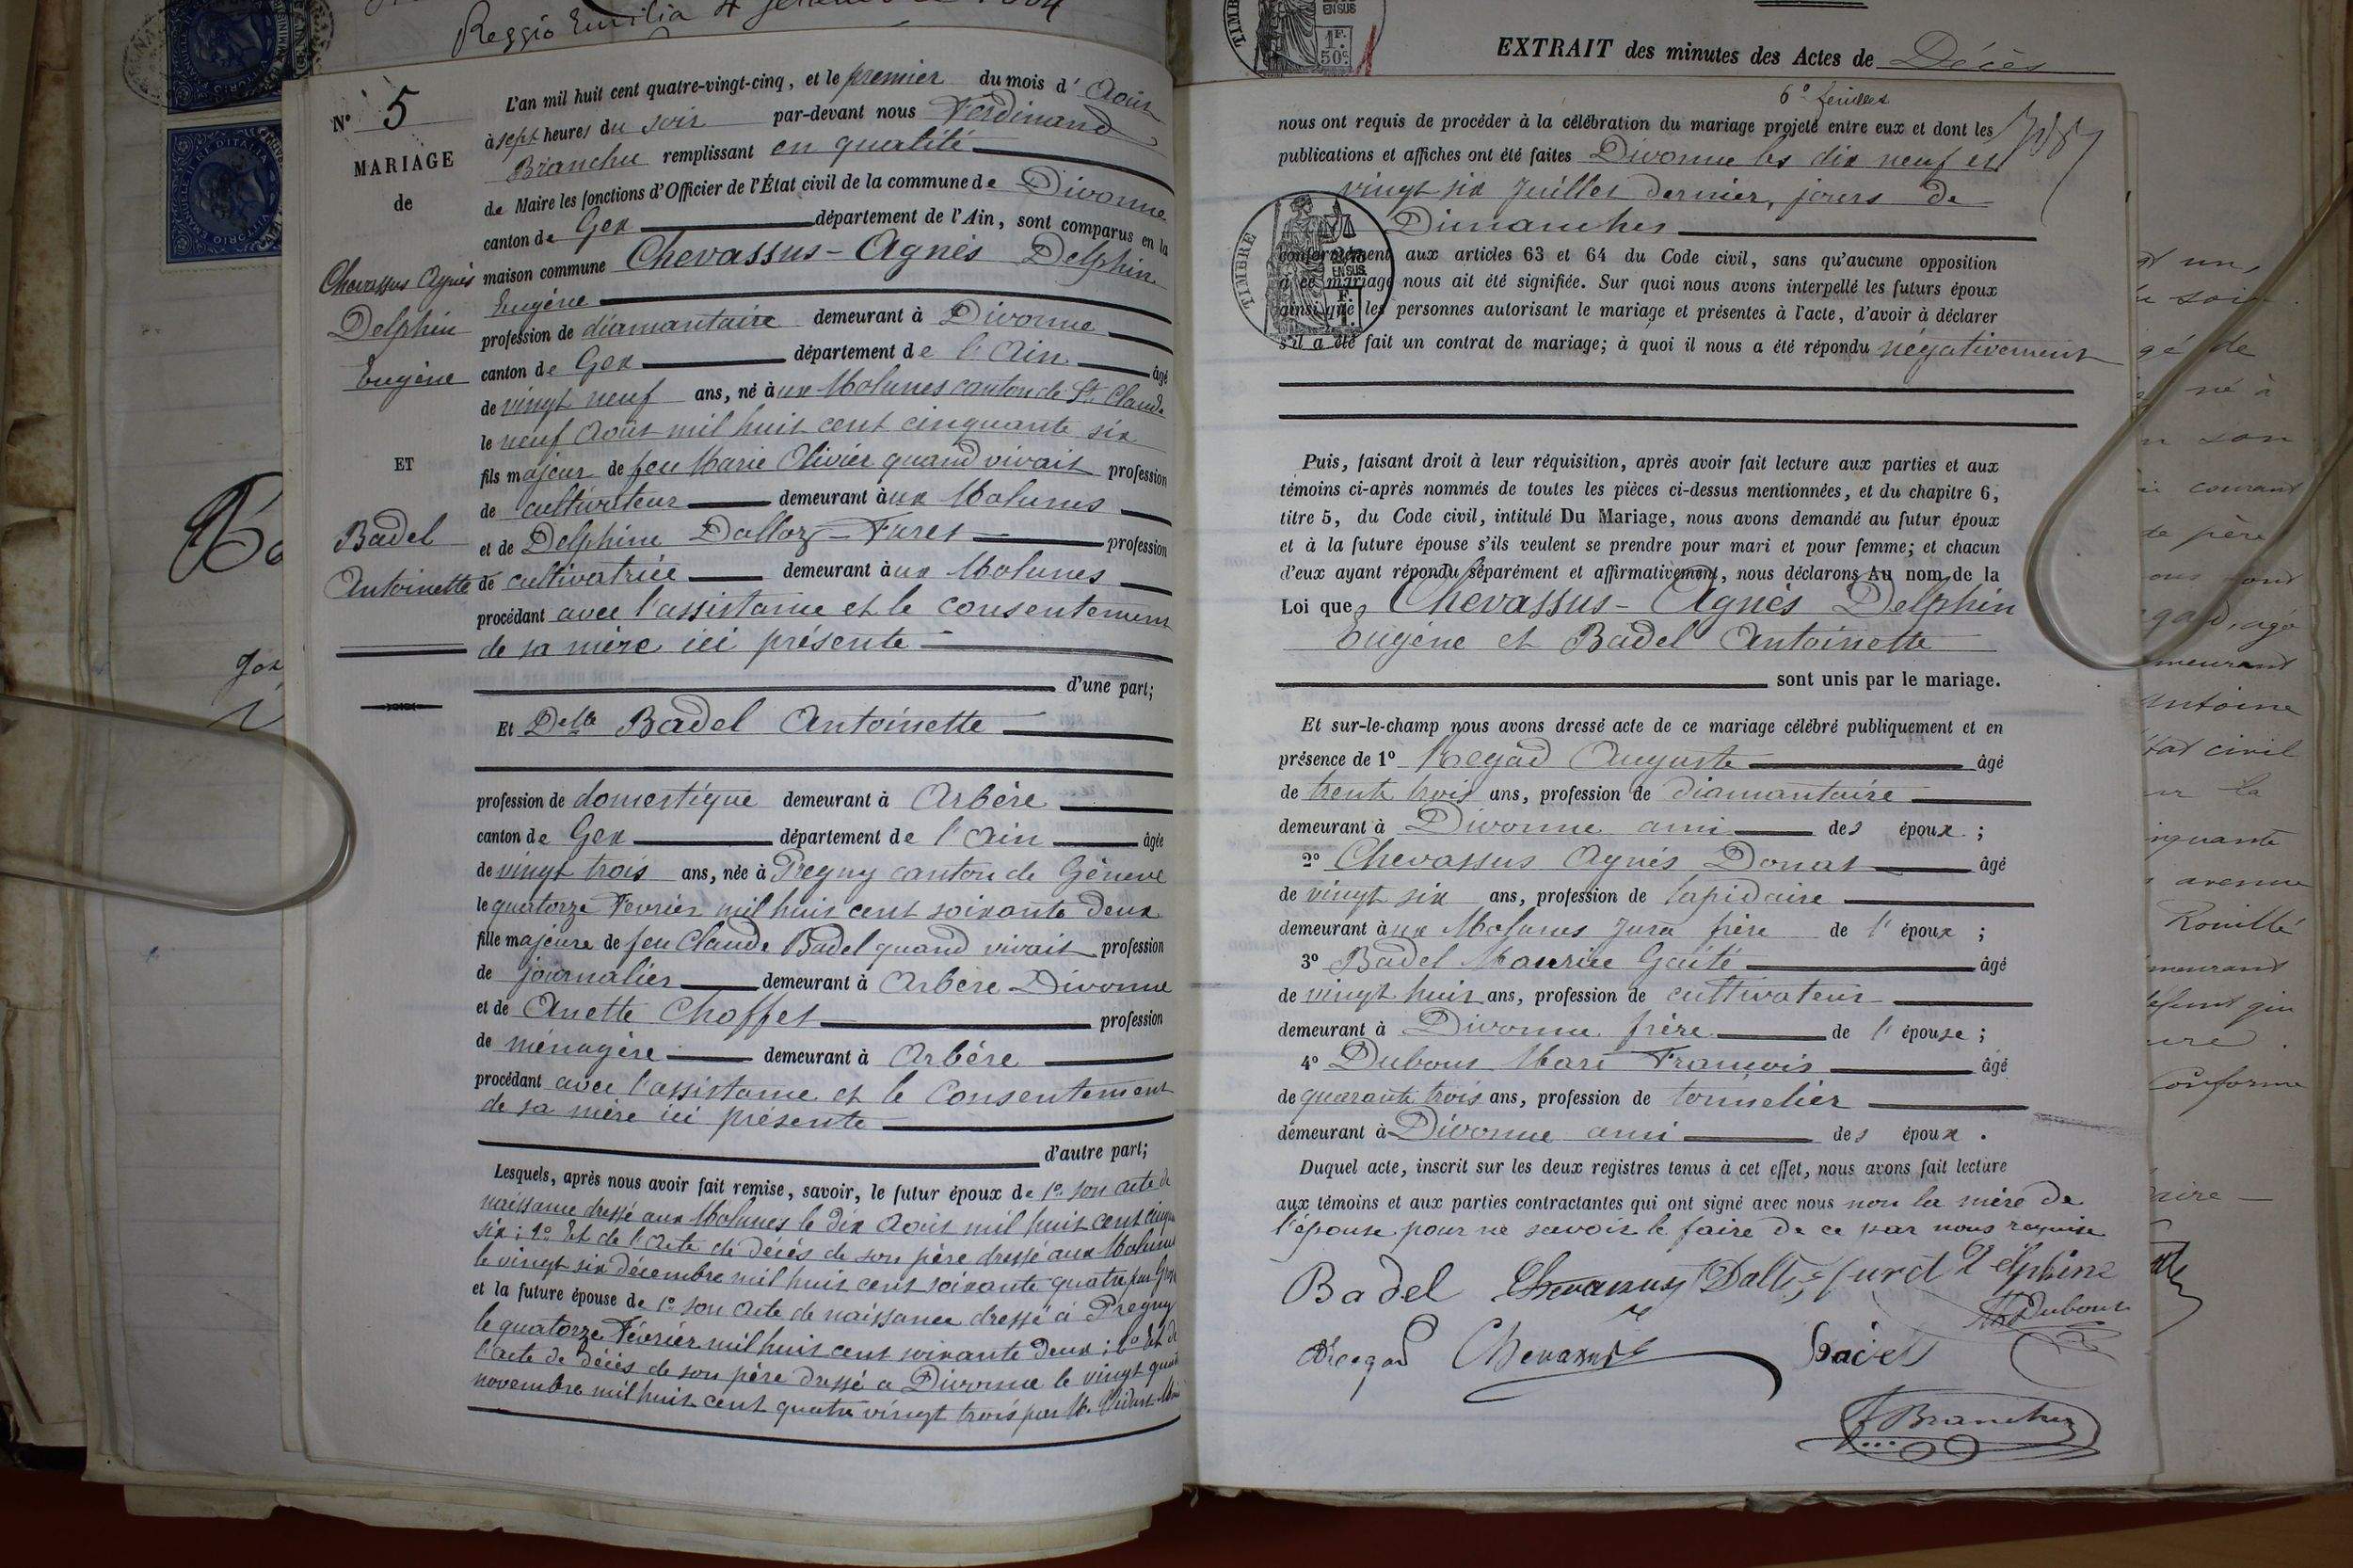 Reggio Emilia 4
N° 5
MARIAGE
de
Chevassus Agnès
Delphin
Eugène
ET
Badel
Antoinette
L'an mil huit cent quatre-vingt-cinq, et le premier du mois d' Août
à sept heures du soir par-devant nous Ferdinand
Branchu remplissant en qualité
de Maire les fonctions d'Officier de l'État civil de la commune de Divonne
canton de Gex département de l'Ain, sont comparus en la
maison commune Chevassus-Agnès Delphin
Eugène
profession de diamantaire demeurant à Divonne
canton de Gex département de l'Ain âgé
de vingt neuf ans, né à ux Molunes canton de St Claude
le neuf Août mil huit cent cinquante six
fils majeur de feu Marie Olivier quand vivait profession
de cultivateur demeurant à ux Molunes
et de Delphine Dalloz-Furet profession
de cultivatrice demeurant à ux Molunes
procédant avec l'assistance et le consentement
de sa mère ici présente
d'une part;
Et Delle Badel Antoinette
profession de domestique demeurant à Arbère
canton de Gex département de l'Ain âgée
de vingt trois ans, née à Pregny canton de Génève
le quatorze Février mil huit cent soixante deux
fille majeure de feu Claude Badel quand vivait profession
de journalier demeurant à Arbère Divonne
et de Anette Choffet profession
de ménagère demeurant à Arbère
procédant avec l'assistance et le Consentement
de sa mère ici présente
d'autre part;
Lesquels, après nous avoir fait remise, savoir, le futur époux de 1° son acte de
naissance dressé aux Molunes le dix Août mil huit cent
six; 2° Et de l'acte de décés de son père dressé aux Molunes
le vingt six décembre mil huit cent soixante quatre par
et la future épouse de 1° son acte de naissance dressé à Pregny
le quatorze Février mil huit cent soixante deux; 2° Et de
l'acte de décés de son père dressé a Divonne le vingt
novembre mil huit cent quatre vingt trois par M.
TIMBRE
EN SUS
1F.
50c.
EXTRAIT des minutes des Actes de Décès
6e feuillet
nous ont requis de procéder à la célébration du mariage projeté entre eux et dont les
publications et affiches ont été faites Divonne les dix neuf et
vingt six Juillet dernier, jours de
Dimanches
TIMBRE
EN SUS
conformément aux articles 63 et 64 du Code civil, sans qu'aucune opposition
à ce mariage nous ait été signifiée. Sur quoi nous avons interpellé les futurs époux
ainsi que les personnes autorisant le mariage et présentes à l'acte, d'avoir à déclarer
s'il a été fait un contrat de mariage; à quoi il nous a été répondu négativement
Puis, faisant droit à leur réquisition, après avoir fait lecture aux parties et aux
témoins ci-après nommés de toutes les pièces ci-dessus mentionnées, et du chapitre 6,
titre 5, du Code civil, intitulé Du Mariage, nous avons demandé au futur époux
et à la future épouse s'ils veulent se prendre pour mari et pour femme; et chacun
d'eux ayant répondu séparément et affirmativement, nous déclarons Au nom de la
Loi que Chevassus-Agnès Delphin
Eugène et Badel Antoinette
sont unis par le mariage.
Et sur-le-champ nous avons dressé acte de ce mariage célébré publiquement et en
présence de 1° Regad Auguste âgé
de trente trois ans, profession de diamantaire
demeurant à Divonne ami des époux;
2° Chevassus Agnés Donat âgé
de vingt six ans, profession de lapidaire
demeurant à ux Molunes Jura frère de l'époux;
3° Badel Maurice Gaité âgé
de vingt huit ans, profession de cultivateur
demeurant à Divonne frère de l'épouse;
4° Dubout Mari François âgé
de quarante trois ans, profession de tonnelier
demeurant à Divonne ami des époux.
Duquel acte, inscrit sur les deux registres tenus à cet effet, nous avons fait lecture
aux témoins et aux parties contractantes qui ont signé avec nous non la mère de
l'épouse pour ne savoir le faire de ce par nous requise
Badel Chevassus Dalloz-furet Delphine
Dubout
Regad Chevassus Badel
F Branchu
né à
son
courant
père
gad, agé
Antoine
état civil
la
avenue
Rouillé
Conforme